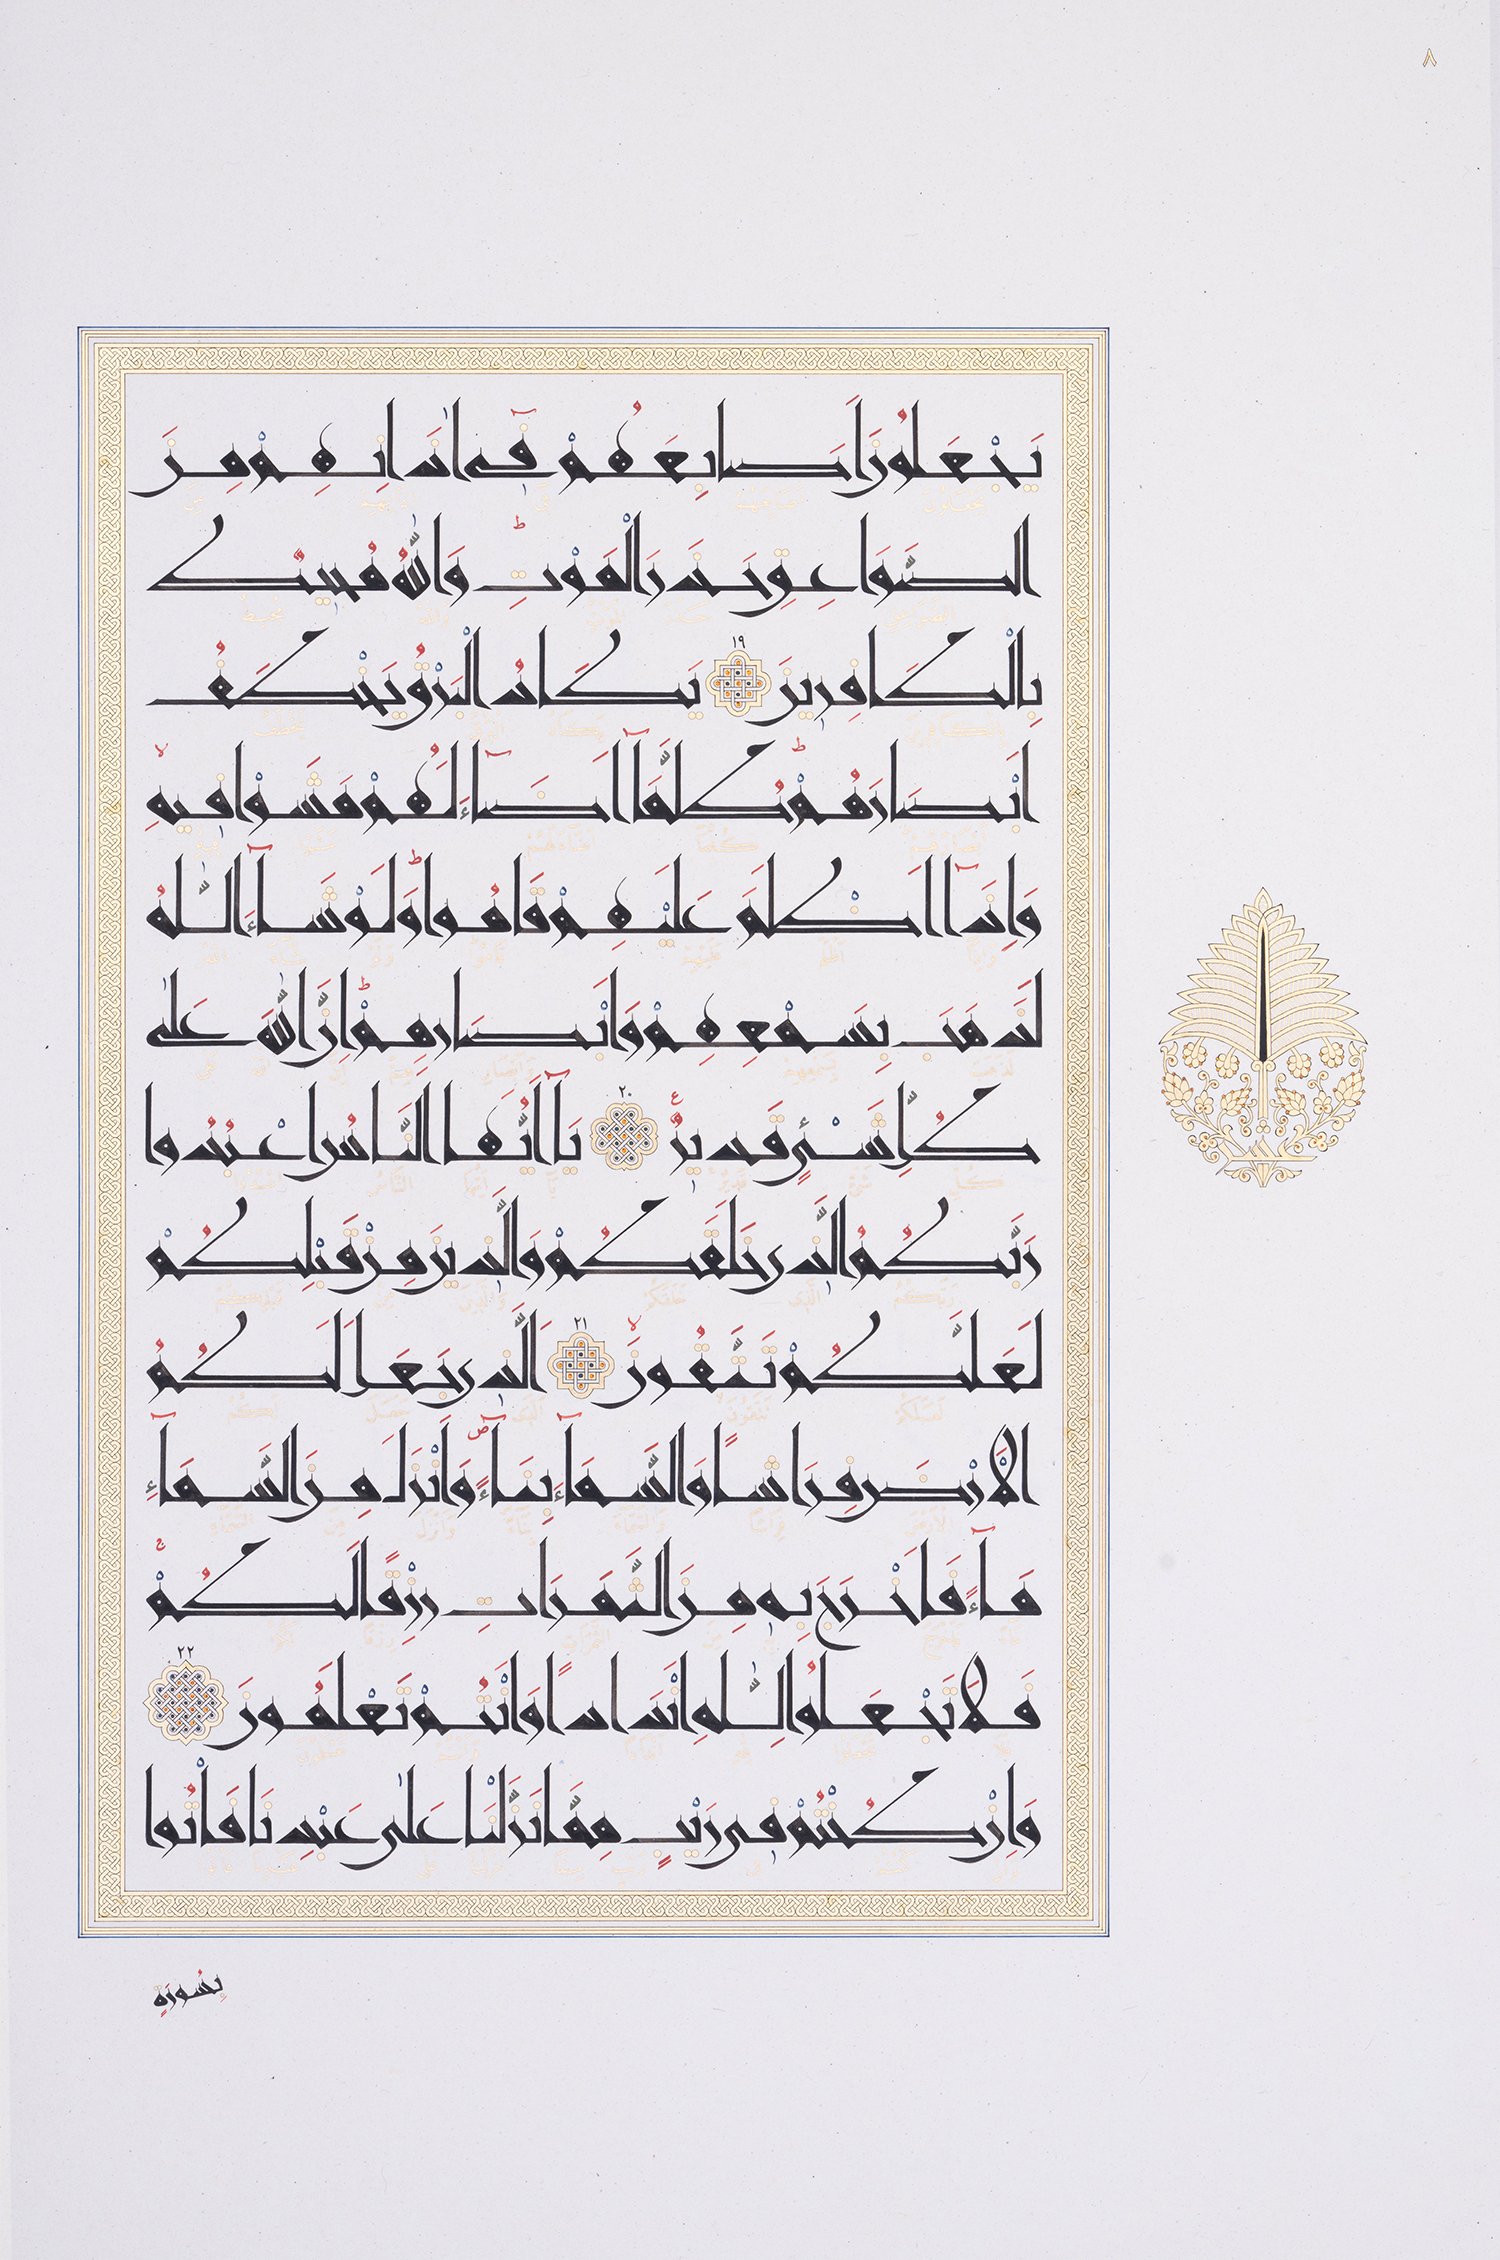 ٨
يَجْعَلُونَ اَصَابِعَهُمْ فٖٓى اٰذَانِهِمْ مِنَ
الصَّوَاعِقِ حَذَرَ الْمَوْتِؕ وَاللّٰهُ مُحٖيطٌ
بِالْكَافِرٖينَ ١٩ يَكَادُ الْبَرْقُ يَخْطَفُ
اَبْصَارَهُمْؕ كُلَّمَٓا اَضَٓاءَ لَهُمْ مَشَوْا فٖيهِۙ
وَاِذَٓا اَظْلَمَ عَلَيْهِمْ قَامُواؕ وَلَوْ شَٓاءَ اللّٰهُ
لَذَهَبَ بِسَمْعِهِمْ وَاَبْصَارِهِمْؕ اِنَّ اللّٰهَ عَلٰى
كُلِّ شَىْءٍ قَدٖيرٌࣖ ٢٠ يَٓا اَيُّهَا النَّاسُ اعْبُدُوا
رَبَّكُمُ الَّذٖى خَلَقَكُمْ وَالَّذٖينَ مِنْ قَبْلِكُمْ
لَعَلَّكُمْ تَتَّقُونَۙ ٢١ اَلَّذٖى جَعَلَ لَكُمُ
الْاَرْضَ فِرَاشًا وَالسَّمَٓاءَ بِنَٓاءًࣕ وَاَنْزَلَ مِنَ السَّمَٓاءِ
مَٓاءً فَاَخْرَجَ بِهٖ مِنَ الثَّمَرَاتِ رِزْقًا لَكُمْۚ
فَلَا تَجْعَلُوا لِلّٰهِ اَنْدَادًا وَاَنْتُمْ تَعْلَمُونَ ٢٢
وَاِنْ كُنْتُمْ فٖى رَيْبٍ مِمَّا نَزَّلْنَا عَلٰى عَبْدِنَا فَاْتُوا
عشر
بِسُورَةٍ